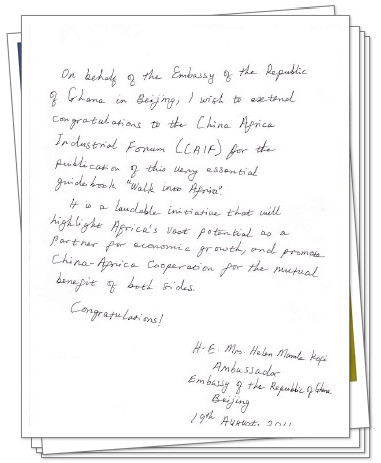 On behalf of the Embassy of the Republic
of Ghana in Beijing, I wish to extend
congratulations to the China Africa
Industrial Forum (CAIF) for the
publication of this very essential
guidebook "Walk into Africa".
It is a laudable initiative that will
highlight Africa's vast potential as a
partner for economic growth, and promote
China-Africa Cooperation for the mutual
benefit of both sides.
Congratulations!
H.E. Mrs. Helen Mamle Kofi
Ambassador
Embassy of the Republic of Ghana
Beijing
19th August, 2011